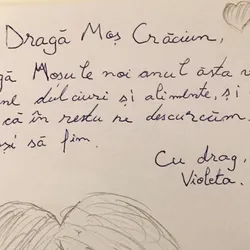 Dragă Moș Crăciun,
gă Mosule noi anul ăsta v
ne dulciuri și alimente, și
că în restu ne descurcăm.
și să fim.
Cu drag,
Violeta.